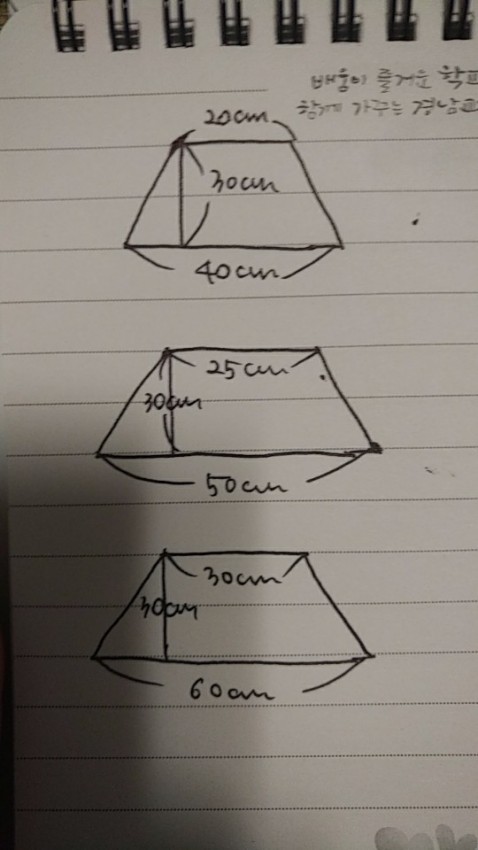 배움이 즐거운 학교
함께 가꾸는 경남교
20cm
30cm
40cm
25cm
30cm
50cm
30cm
30cm
60cm